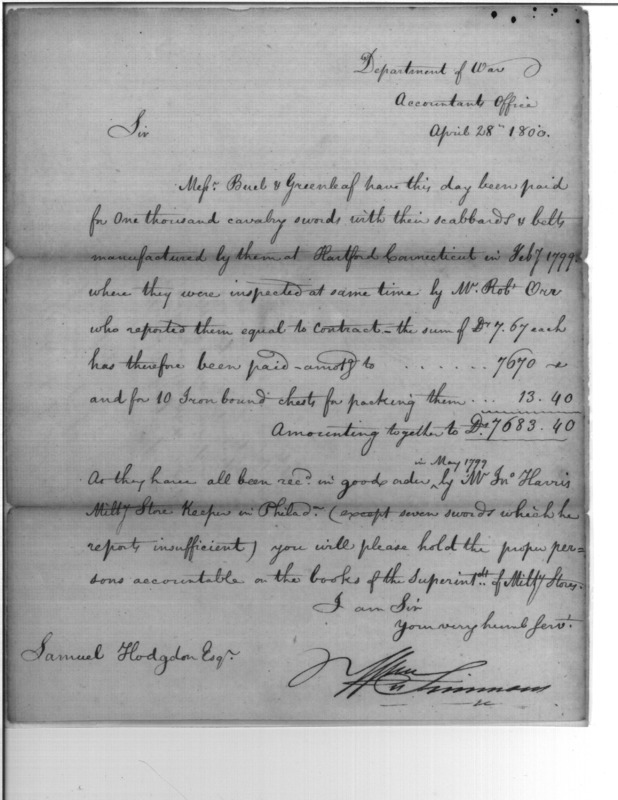 Department of War
Accountants Office
April 28th 1800.
Sir
Messrs. Buel & Greenleaf have this day been paid
for One thousand cavalry swords with their scabbards & belts
manufactured by them at Hartford Connecticut in Feby 1799
where they were inspected at same time by Mr. Robt Orr
who reported them equal to contract - the sum of Ds 7.67 each
has therefore been paid - amotg to . . . . . . 7670 -
and for 10 Iron bound chests for packing them . . . 13.40
Amounting together to Ds. 7683.40
in May 1799
As they have all been recd. in good order, by Mr Jno Harris
Milty Store Keeper in Philada. (except seven swords which he
reports insufficient) you will please hold the proper per=
sons accountable on the books of the Superintdt. of Milty Stores.
I am Sir
Your very humb Servt.
Wm Simmons
Samuel Hodgdon Esqr.